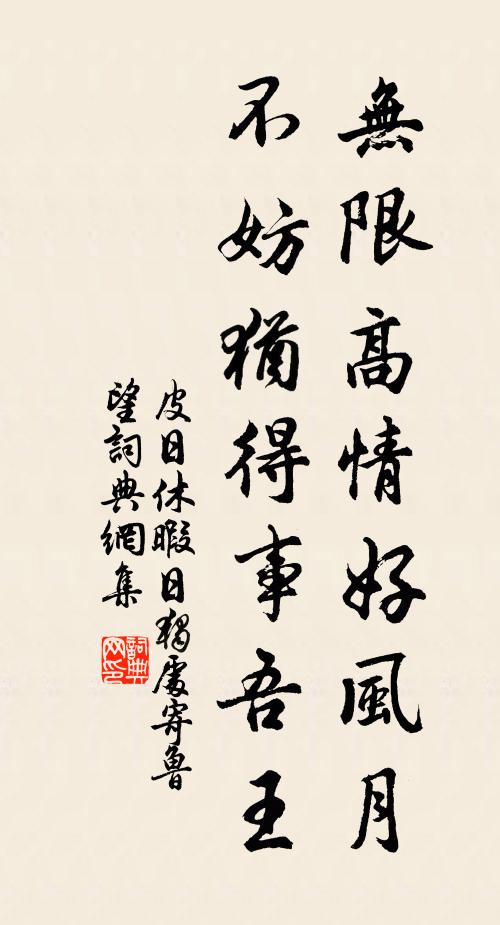 無限高情好風月
不妨猶得事吾王
皮日休暇日獨處寄魯
望詞典網集
詞典
网印